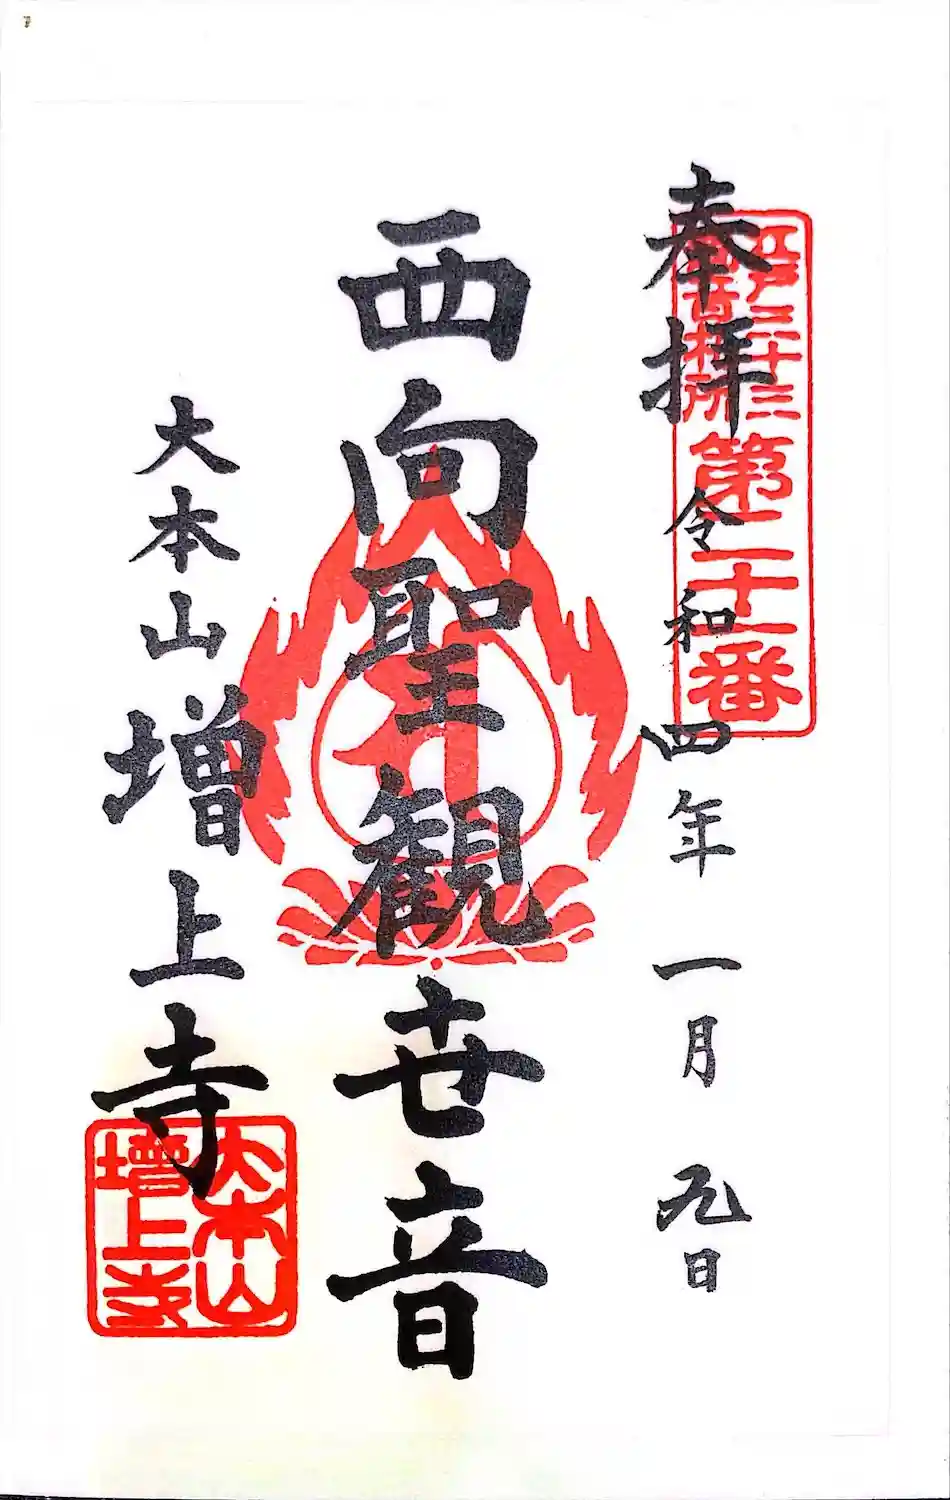 江戸三十三
観音札所
第二十一番
奉拝 令和四年一月九日
西向聖観世音
大本山増上寺
大本山
增上寺